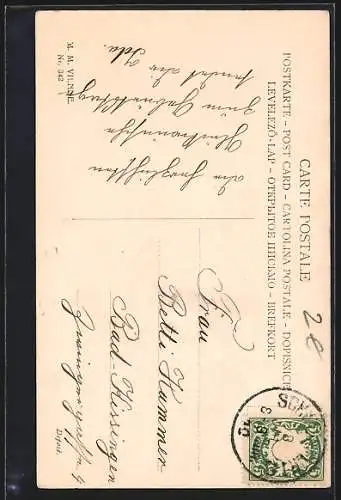 CARTE POSTALE
POSTKARTE – POST CARD – CARTOLINA POSTALE – DOPISNICE
LEVELEZŐ-LAP – ОТКРЫТОЕ ПИСЬМО – BREFKORT
die herzlichsten
Glückwünsche
zum Geburtstag
sendet dir
Ida.
M. M. VIENNE.
No. 342
Frau
Betti Hammer
Bad-Kissingen
28